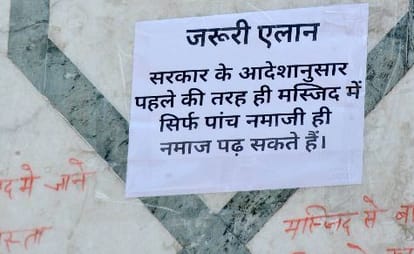 जरूरी एलान
सरकार के आदेशानुसार
पहले की तरह ही मस्जिद में
सिर्फ पांच नमाजी ही
नमाज पढ़ सकते हैं।
में जाने
स्ता
मस्जिद से